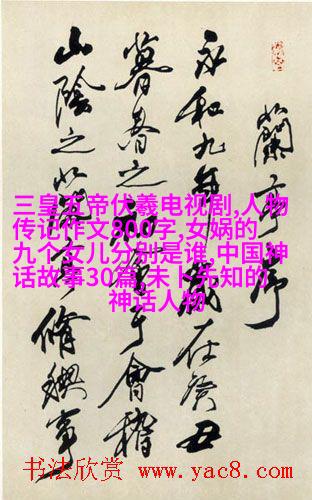 蘭亭序
永和九年歲在癸丑
暮春之初會于會稽
山陰之蘭亭脩禊事
三皇五帝伏羲电视剧,人物
传记作文800字,女娲的
九个女儿分别是谁,中国神
话故事30篇,未卜先知的
神话人物
书法欣赏 www.yac8.com